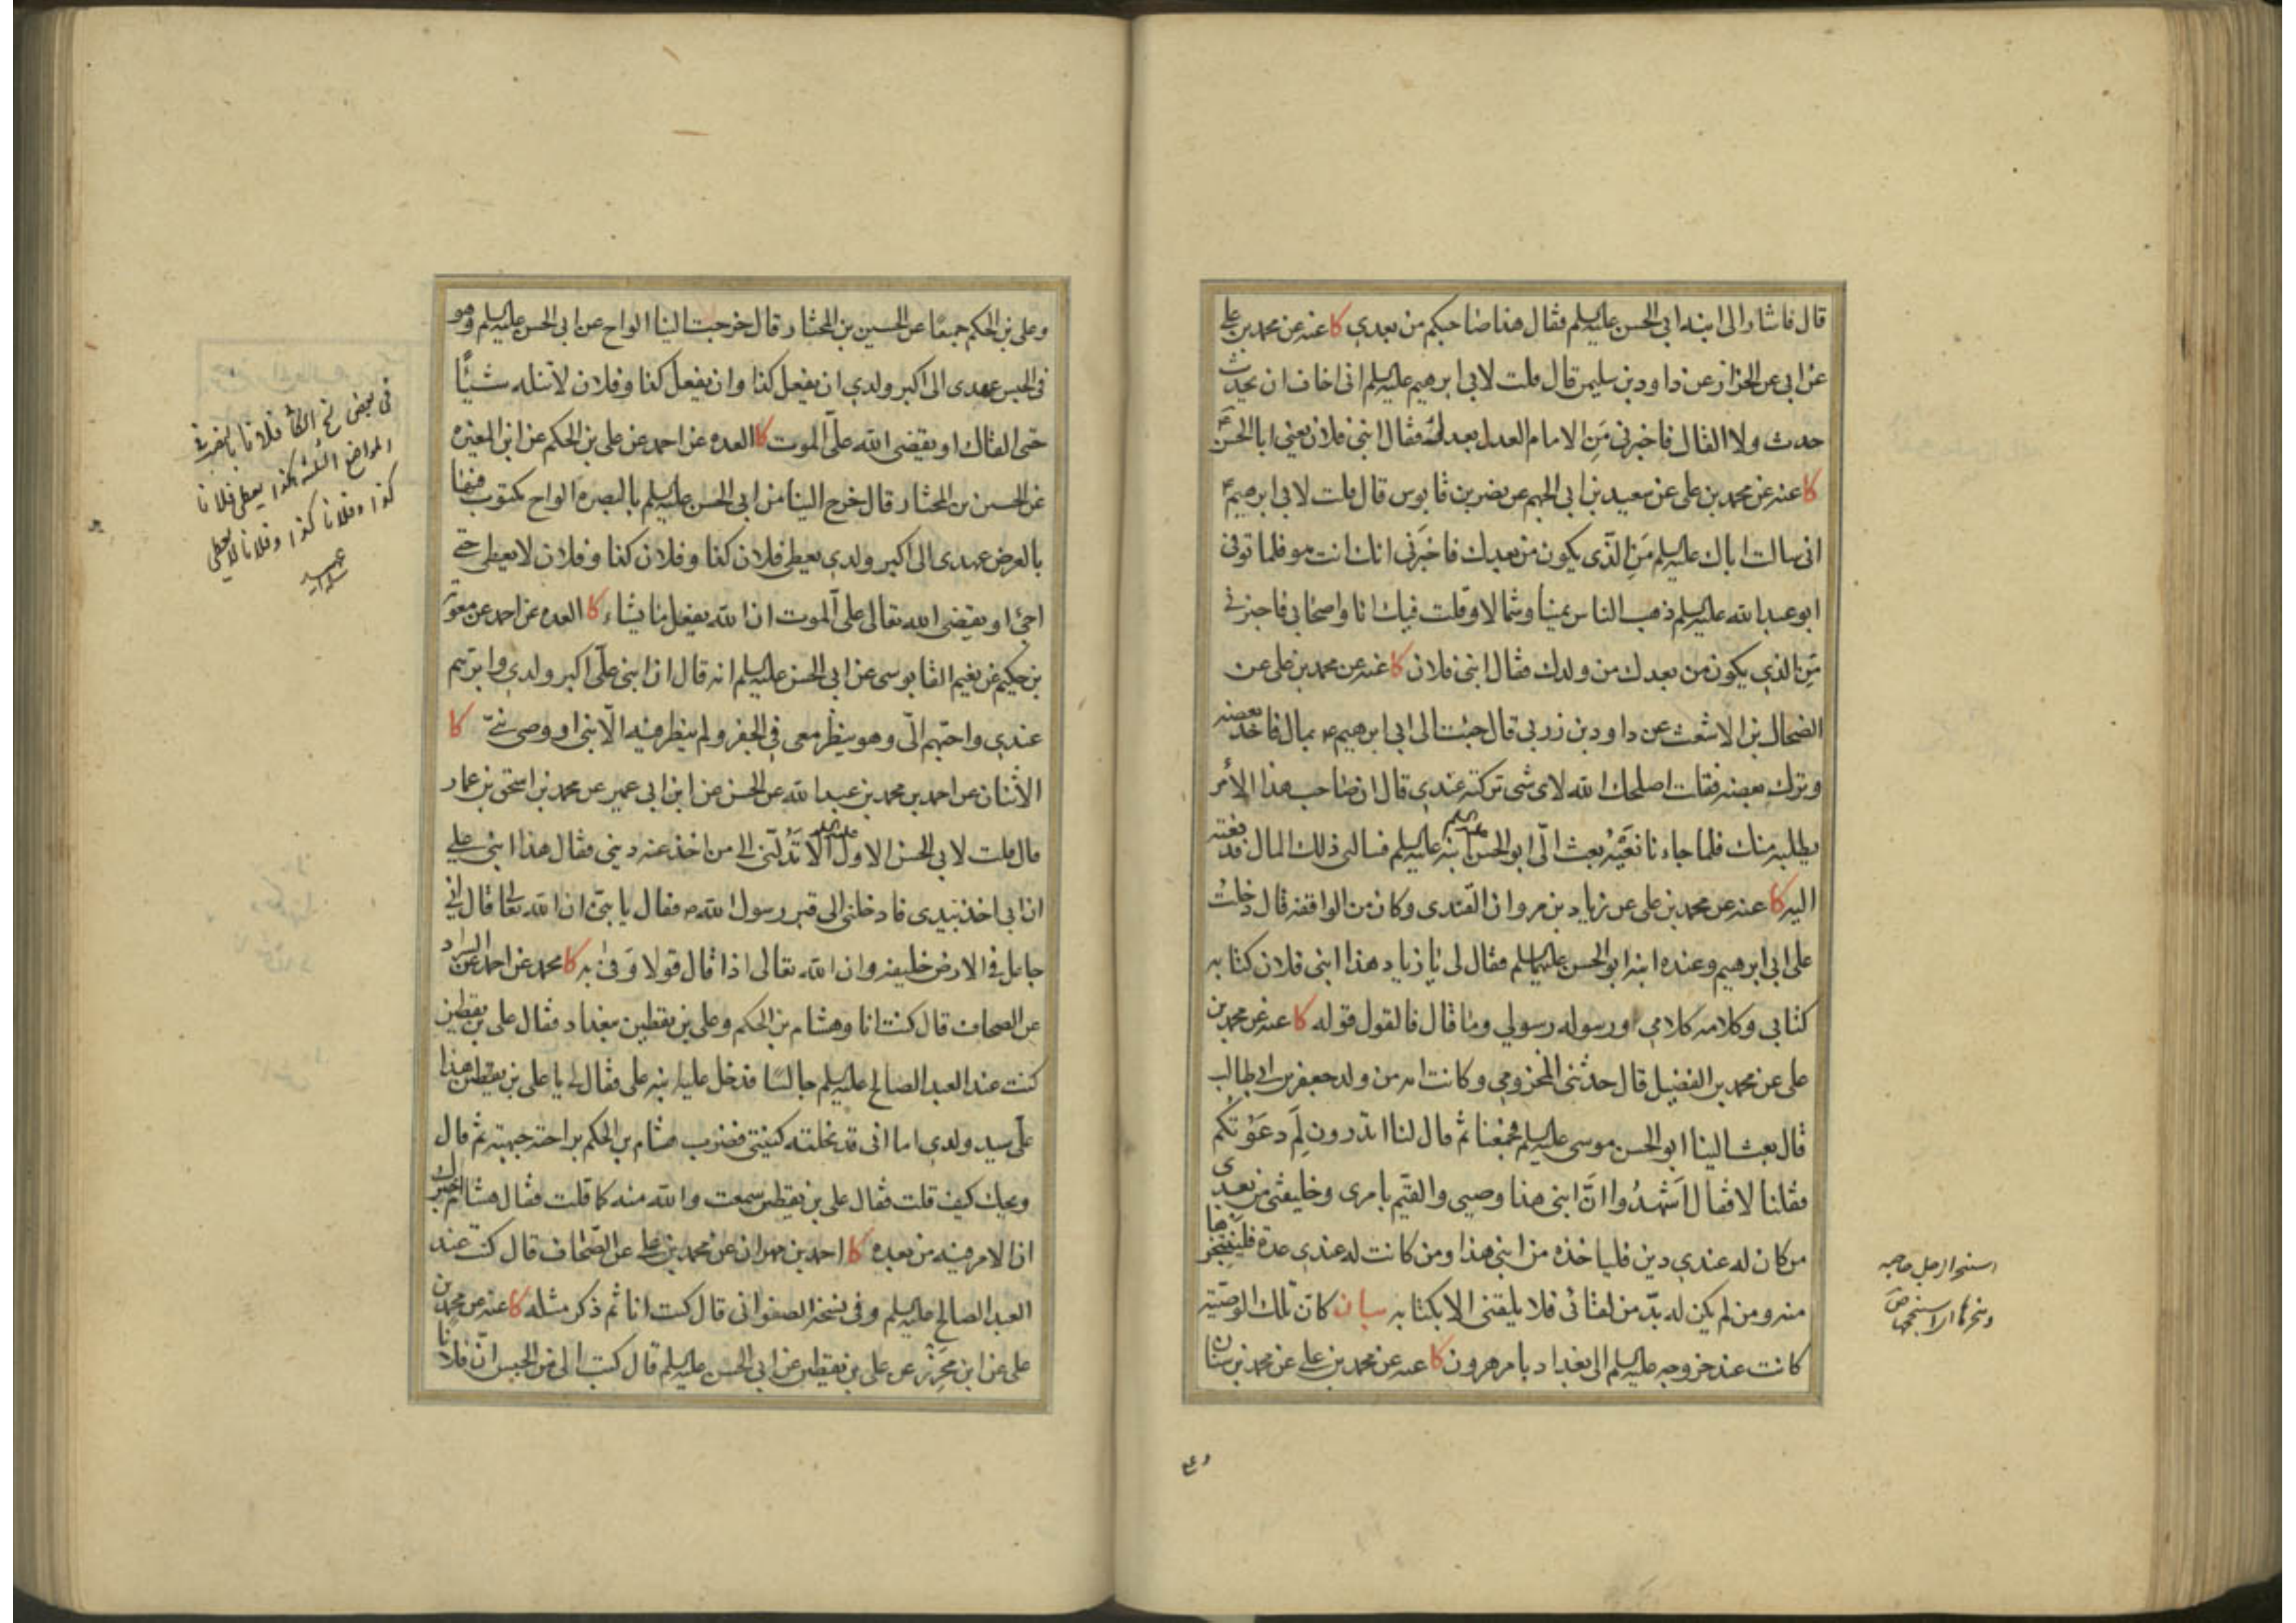 قال فاشار الى ابنه ابى الحسن عليه السلم فقال هذا صاحبكم من بعدى كا عنه عن محمد بن على
عن ابى على الخزاز عن داود بن سليمن قال قلت لابى ابرهيم عليه السلم انى اخاف ان يحدث
حدث ولا القاك فاخبرنى مَنِ الامام العدل بعدك فقال ابنى فلان يعنى ابا الحسن ع
كا عنه عن محمد بن على عن سعيد بن ابى الجهم عن نصر بن قابوس قال قلت لابى ابرهيم ع
انى سالت اباك عليه السلم مَنِ الذّى يكون من بعدك فاخبَرَنى انك انت هو فلما توفى
ابو عبد الله عليه السلم ذهب الناس يمينا وشمالا وقلت فيك انا واصحابى فاخبرنى
مَنِ الذى يكون من بعدك من ولدك فقال ابنى فلان كا عنه عن محمد بن على عن
الضحاك بن الاشعث عن داود بن زربى قال جئت الى ابى ابرهيم ع بمال فاخذ بعضه
وترك بعضه فقلت اصلحك الله لاى شى تركته عندى قال ان صاحب هذا الأمر
يطلبه منك فلما جاءنا نعيُه بعث الىّ ابو الحسن ابنه عليه السلم فسالنى ذلك المال فدفعته
اليه كا عنه عن محمد بن على عن زياد بن مروان القندى وكان من الواقفة قال دخلت
على ابى ابرهيم وعنده ابنه ابو الحسن عليهما السلم فقال لى يا زياد هذا ابنى فلان كتابه
كتابى وكلامه كلامى ورسوله رسولى وما قال فالقول قوله كا عنه عن محمد بن
على عن محمد بن الفضيل قال حدثنى المخزومى وكانت امه من ولد جعفر بن ابى طالب
قال بعث الينا ابو الحسن موسى عليه السلم فجمعنا ثم قال لنا اتدرون لِمَ دعَوْتكم
فقلنا لا فقال اَشهدُوا انّ ابنى هذا وصيى والقيّم بامرى وخليفتى من بعدى
من كان له عندى دين فلياخذه من ابنى هذا ومن كانت له عندى عدة فلينجزها
منه ومن لم يكن له بدّ من لقائى فلا يلقنى الا بكتابه بيان كانّ تلك الوصيّة
كانت عند خروجه عليه السلم الى بغداد بامر هرون كا عنه عن محمد بن على عن محمد بن سنان
استنجز الرجل حاجه
وعلى بن الحكم جميعًا عن الحسين بن المختار قال خرجت الينا الواح عن ابى الحسن عليه السلم وهو
فى الحبس عهدى الى اكبر ولدى ان يفعل كذا وان يفعل كذا وفلان لا تنله شيئًا
حتى القاك او يقضى الله علىّ الموت كا العده عن احمد عن على بن الحكم عن ابن المغيره
عن الحسين بن المختار قال خرج الينا من ابى الحسن عليه السلم بالبصره الواح مكتوب فيها
بالعرض عهدى الى اكبر ولدى يعطى فلان كذا وفلان كذا وفلان كذا وفلان لا يعطى حتى
اجئ او يقضى الله تعالى علىّ الموت ان الله يفعل ما يشاء كا العده عن احمد عن معوية
بن حكيم عن نعيم القابوسى عن ابى الحسن عليه السلم انه قال ان ابنى علّى اكبر ولدى وابرّهم
عندى واحبّهم الىّ وهو ينظر معى فى الجفر ولم ينظر فيه الّا نبى او وصى نبىّ كا
الاثنان عن احمد بن محمد بن عبد الله عن الحسن عن ابن ابى عمير عن محمد بن اسحق بن عمار
قال قلت لابى الحسن الاول عليه السلم الا تدُلّنى الى من اخذ عنه دينى فقال هذا ابنى على
ان ابى اخذ بيدى فادخلنى الى قبر رسول الله ص فقال يا بنىّ ان الله تعالى قال انى
جاعل فى الارض خليفه وان الله تعالى اذا قال قولا وَفى به كا محمد عن احمد عن السراد
عن الصحاف قال كنت انا وهشام بن الحكم وعلى بن يقطين ببغداد فقال على بن يقطين
كنت عند العبد الصالح عليه السلم جالسًا فدخل عليه ابنه على فقال لى يا على بن يقطين هذا
علّى سيد ولدى اما انى قد نحلته كنيتى فضرب هشام بن الحكم براحته جبهته ثم قال
ويحك كيف قلت فقال على بن يقطين سمعت والله منه كما قلت فقال هشام اخبرك
ان الامر فيه من بعده كا احمد بن مهران عن محمد بن على عن الصّحاف قال كنت عند
العبد الصالح عليه السلم وفى نسخة الصفوانى قال كنت انا ثم ذكر مثله كا عنه عن محمد بن
على عن ابن محرز عن على بن يقطين عن ابى الحسن عليه السلم قال كتب الى من الحبس انّ فلانا
فى بعض نسخ الكا فلانا بالنصب فى
المواضع الثلثة هكذا يعطى فلانا
كذا وفلانا كذا وفلانا لا يعطى